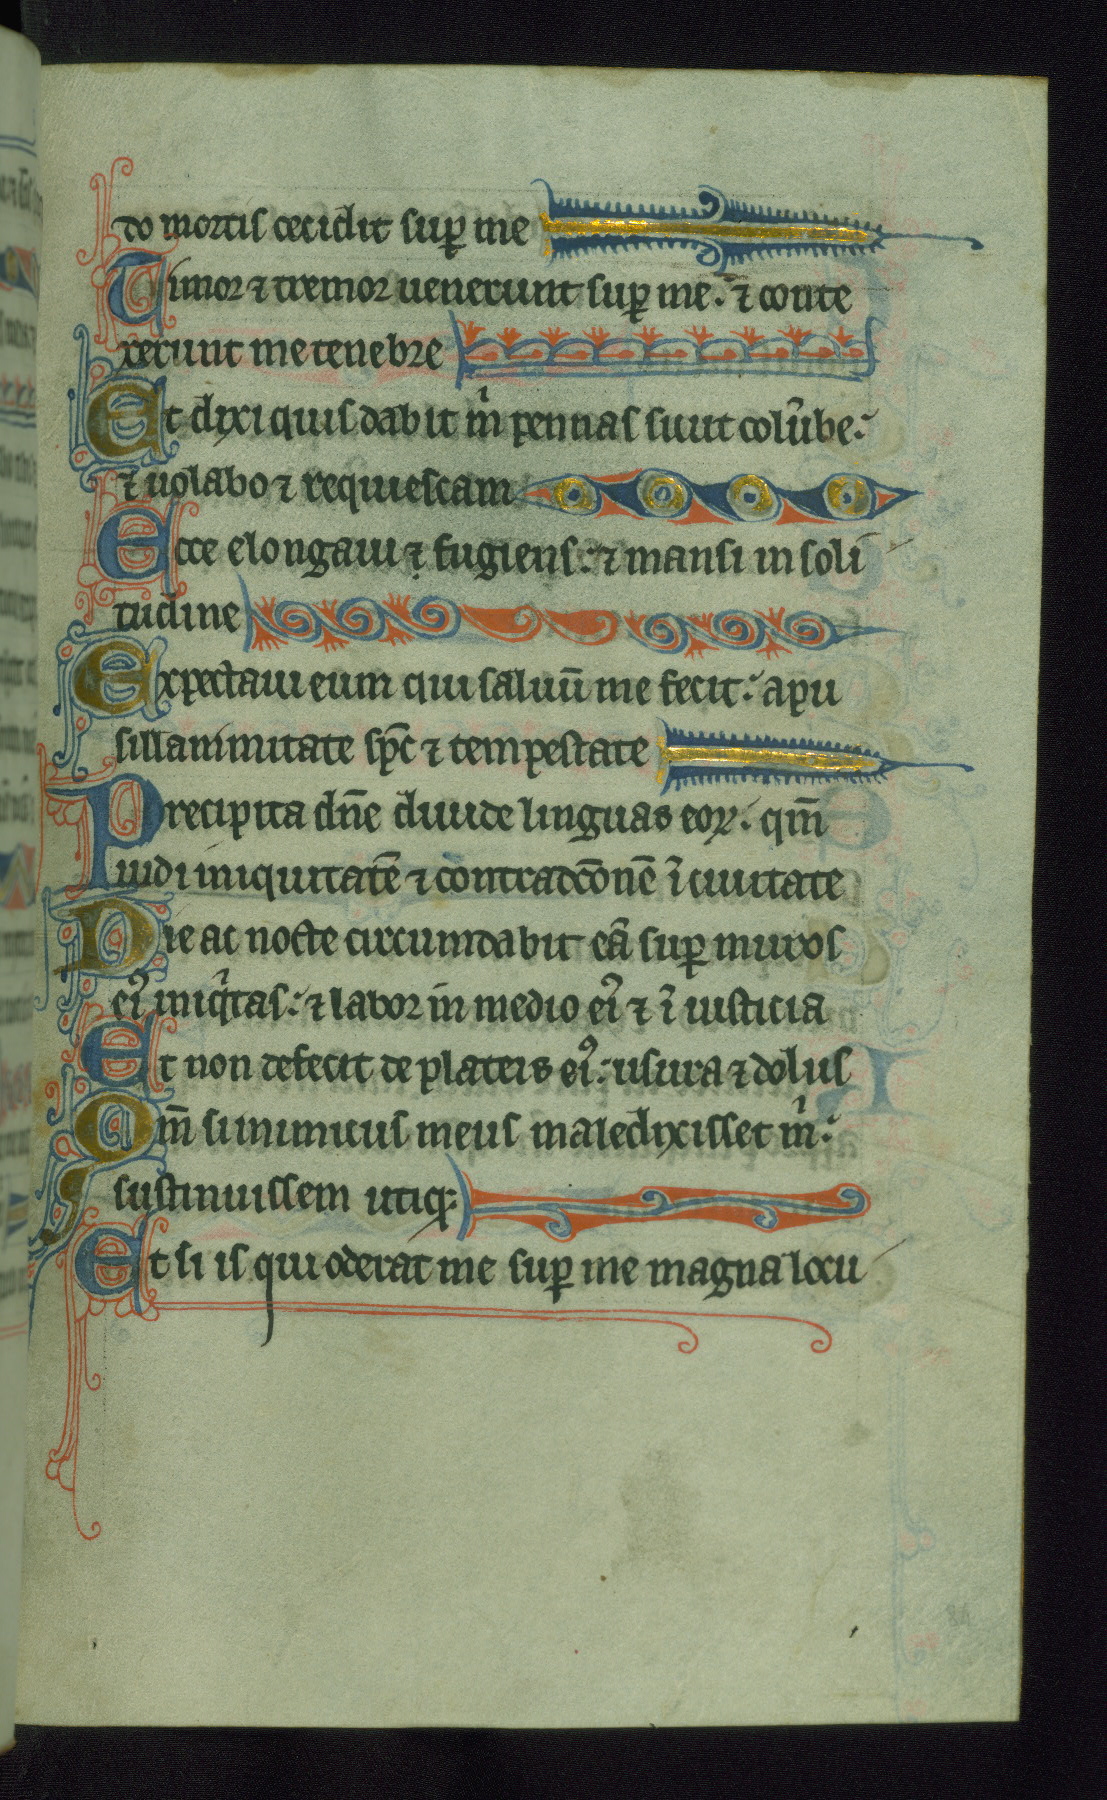 do mortis cecidit sup̱ me
Timor ⁊ tremor uenerunt sup̱ me. ⁊ conte
xerunt me tenebre
Et dixi quis dabit m̍ pennas sicut colūbe.
⁊ uolabo ⁊ requiescam
Ecce elongaui ⁊ fugiens: ⁊ mansi in soli
tudine
Expectaui eum qui saluū me fecit: a pu
sillanimitate sp̄c ⁊ tempestate
Precipita dn̄e diuide linguas eoꝝ. qm̄
uidi iniquitatē ⁊ contradcōnē ī ciuitate
Die ac nocte circumdabit eā sup̱ muros
ei᷒ iniq̍tas: ⁊ labor in medio ei᷒ ⁊ ī iusticia
Et non defecit de plateis ei᷒: usura ⁊ dolus
Qm̄ si inimicus meus maledixisset m̍:
sustinuissem utiq:
Et si is qui oderat me sup̱ me magna locu
84